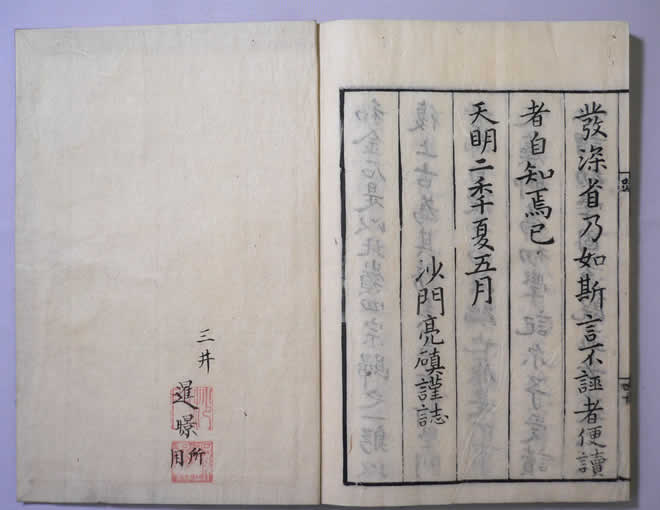 發深省乃如斯言不誣者便讀
者自知焉已
天明二季夏五月
沙門亮磌謹誌
三井
暹暻
所用